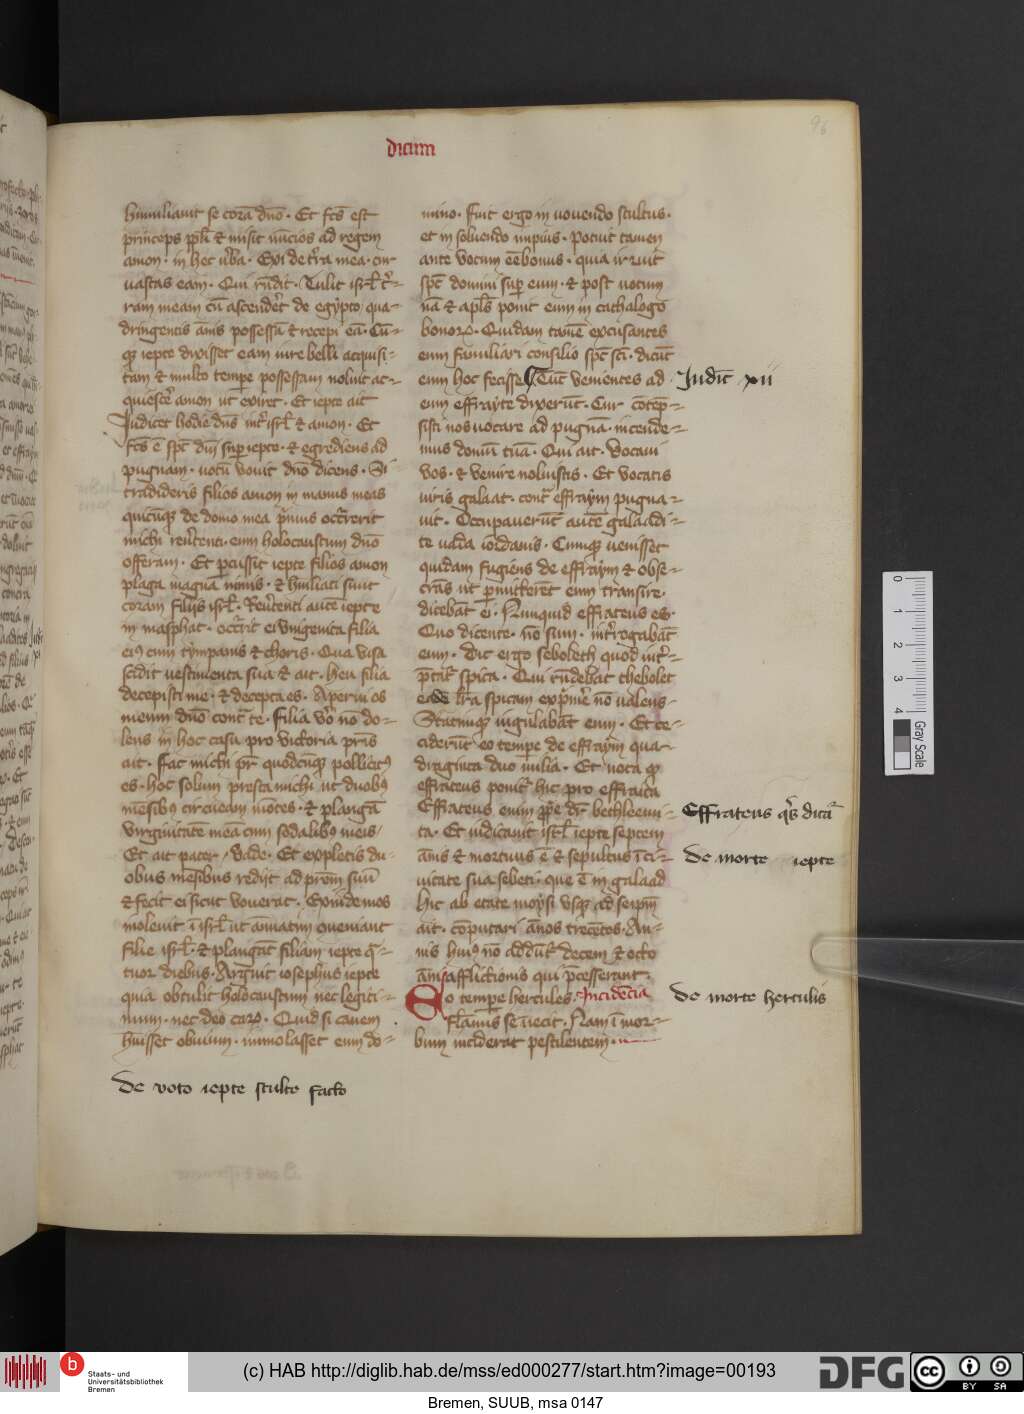 96
dicum
humiliauit se corā dn̄o · Et fc̄s est
princeps pp̄li & misit nūcios ad regem
amon · in hec ūba · Exi de t̄ra mea · cur
vastas eam · Qui r̄ndit · Tulit isrl̄ t̄r-
ram meam cū ascendēt de egypto qua-
dringentis ānis possessā & recepi eā · Cū-
q; iepte dixisset eam iure belli acquisi-
tam & multo tempe possessam noluit ac-
quiesc̄e amon ut exiret · Et iepte ait
Judicet hodie dn̄s int̄ isrl̄ & amon · Et
fc̄s ē spc̄ dn̄i sup iepte · & egrediens ad
pugnam · uotū vouit dn̄o dicens · Si
tradideris filios amon in manus meas
quicūq; de domo mea p̄mus occ̄rerit
michi reūtenti · eum holocaustum dn̄o
offeram · Et pcussit iepte filios amon
plaga magna nimis · & hūiliati sunt
coram filijs isrl̄ · Reūtenti autē iepte
in masphat · occ̄rit ei vnigenita filia
ei⁹ cum tympanis & choris · Qua visa
scidit uestimenta sua & ait · heu filia
decepisti me · & decepta es · Aperui os
meum dn̄o cont̄ te · filia v̄o nō do-
lens in hoc casu pro victoria pr̄is
ait · fac michi pr̄ quodcūq; pollicit⁹
es · hoc solum presta michi ut duob⁹
mēsib⁹ circueam mōtes · & plangā
virginitatē meā cum sodalib⁹ meis /
Et ait pater / Vade · Et expletis du-
obus mēsibus redijt ad prēm suū
& fecit ei sicut vouerat · Exinde mos
inoleuit ī isrl̄ ut annuatim ꝯueniant
filie isrl̄ · & plangāt filiam iepte q̄-
tuor diebus · Arguit iosephus iepte
quia obtulit holocaustum nec legiti-
mum · nec deo carū · Quid si canem
huisset obuium · immolasset eum do-
mino · fuit ergo in uouendo stultus ·
et in soluendo impius · potuit tamen
ante votum eē bonus · quia irruit
spc̄ domini sup eum · & post uotum
nā & apl̄s ponit eum in cathalogo
bonoꝝ · Quidam tamē excusantes
eum familiari consilio spc̄ sc̄i · dicūt
eum hoc fecisse Tūc venientes ad
eum effrayte dixerūt · Cur cōtep-
sisti nos uocare ad pugnā · incende-
mus domū tuā · Qui ait · Vocaui
vos · & venire noluistis · Et vocatis
uiris galaat · cont̄ effraym pugna-
uit · Occupauerūt autē galaadi-
te vada iordanis · Cumq; uenisset
quidam fugiens de effraym & obse-
crās ut pmitterēt eum transire ·
dicebāt ei · Nunquid effrateus es ·
Quo dicente · nō sum · int̄rogabāt
eum · Dic ergo sebolech quod int̄-
p̄tat̄ spica · Qui r̄ndebat thebolet
eadē lr̄a spicam exp̄m̄e nō ualens ·
Statimq; iugulabāt eum · Et ce-
ciderūt eo tempe de effraym qua-
draginta duo milia · Et nota q̇
effrateus ponit̄ hic pro effraita
Effrateus enim pp̄e dr̄ bethleemi-
ta · Et iudicauit isrl̄ iepte septem
ānis & mortuus ē & sepultus ī ci-
uitate sua sebeti · que ē in galaad
hic ab etate moysi vsq; ad seipm̄
ait · cōputari ānos trecētos · An-
nis hui⁹ nō addūt̄ decem & octo
āni afflictionis qui p̄cesserant ·
Eo tempe hercules Incidēcia
flāmis se iecit · Nam ī mor-
bum inciderat pestilentem ·
Judic̄ xii
Effrateus q̄s dicit̄
De morte iepte
De morte herculis
De voto iepte stulte facto
0 1 2 3 4
Gray Scale
b
Staats- und
Universitätsbibliothek
Bremen
(c) HAB http://diglib.hab.de/mss/ed000277/start.htm?image=00193
DFG
cc
BY SA
Bremen, SUUB, msa 0147